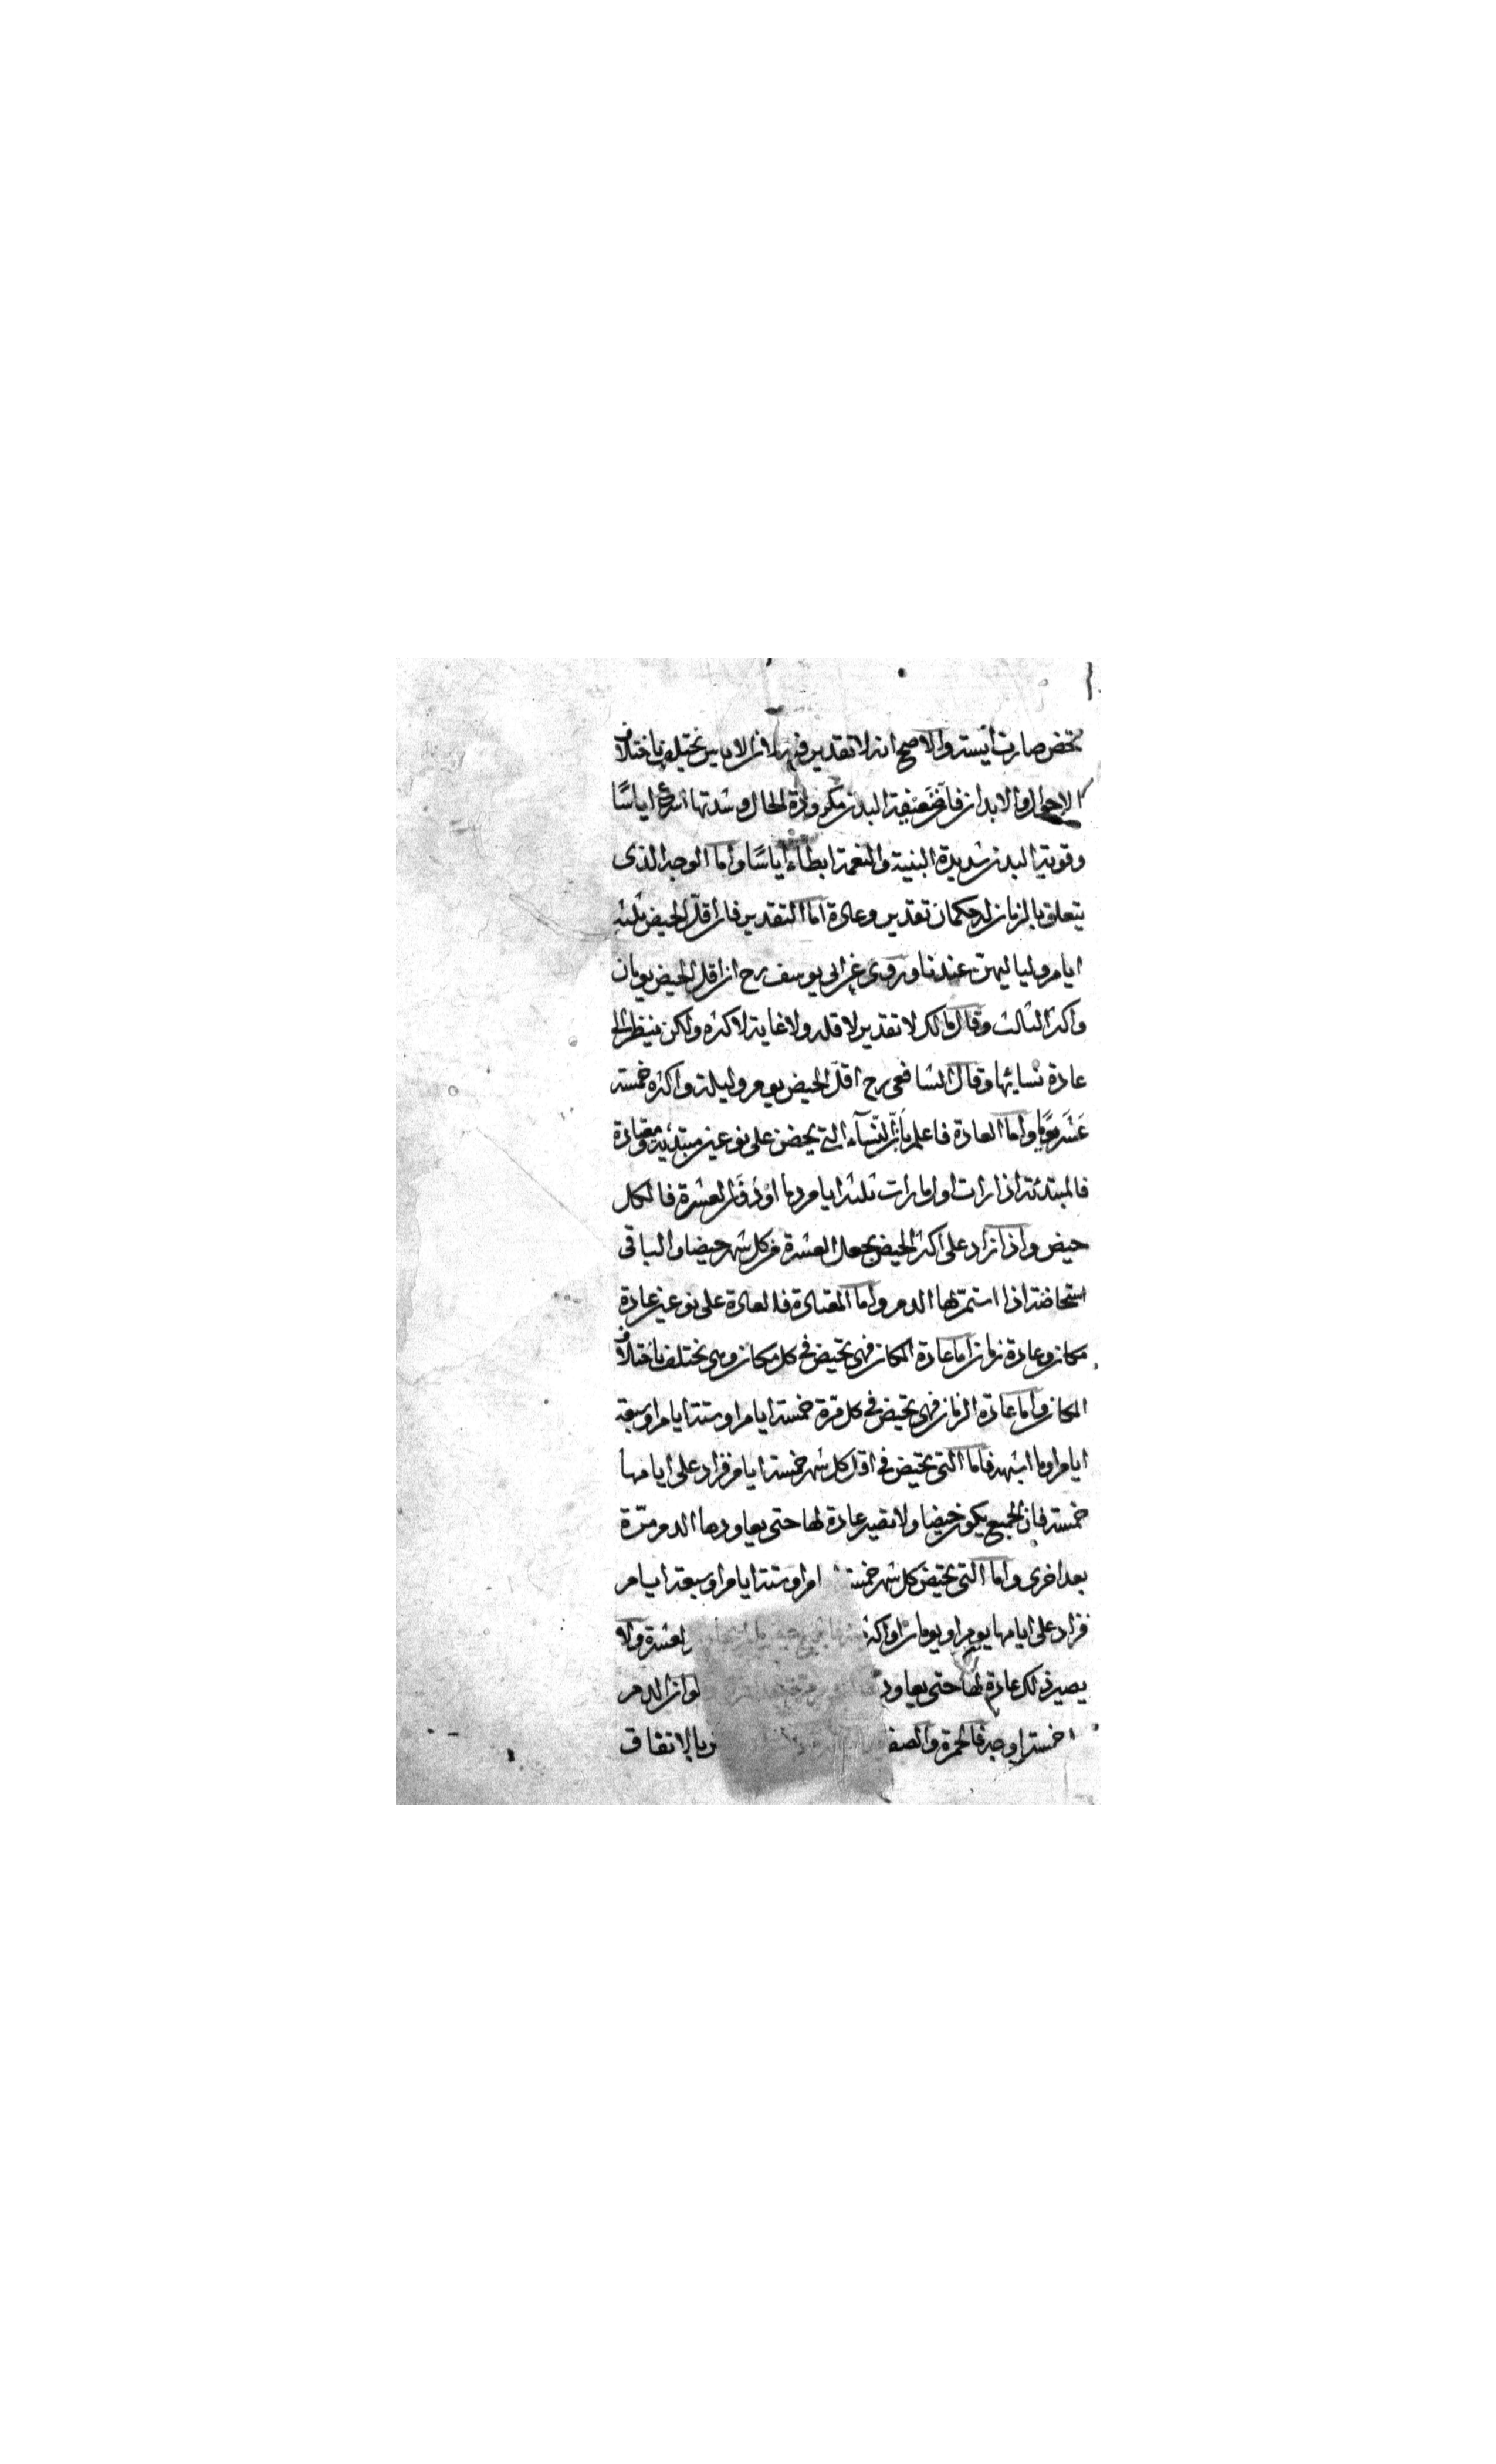 تحض صارت آيسة والاصح انه لا تقدير فيه لان الاياس يختلف باختلاف
الاحوال والابدان فان ضعيفة البدن مكرودة الحال وشدتها اسرع اياسًا
وقوية البدن شديدة البنية والنعمة ابطاء اياسًا واما الوجه الذى
يتعلق بالزمان له حكمان تقدير وعادة اما التقدير فان اقلّ الحيض ثلثه
ايام ولياليهنّ عندنا وروى عن ابى يوسف رح ان اقل الحيض يومان
واكثر الثالث وقال مالك لا تقدير لاقله ولا غاية لاكثره ولكن ينظر الى
عادة نسائها وقال الشافعى رح اقلّ الحيض يوم وليلة واكثره خمسة
عَشَر يومًا واما العادة فاعلم بانّ النّسآء التى يحضن على نوعين مبتدئة ومعتادة
فالمبتدئة اذا رات اول ما رات ثلثة ايام دما او الى العشرة فالكل
حيض واذا زاد على اكثر الحيض يجعل العشرة من كل شهر حيضا والباقى
استحاضة اذا استمرّ لها الدم واما المعتادة فالعادة على نوعين عادة
مكان وعادة زمان اما عادة المكان فهى تحيض فى كل مكان وهى تختلف باختلاف
المكان واما عادة الزمان فهى تحيض فى كل مرّة خمسة ايام او ستة ايام او سبعة
ايام او ما اشبهه فاما التى تحيض فى اوّل كل شهر خمسة ايام فزاد على ايامها
خمسة فان الجميع يكون حيضا ولا تصير عادة لها حتى يعاودها الدم مرّة
بعد اخرى واما التى تحيض كل شهر خمسة ام او ستة ايام او سبعة ايام
فزاد على ايامها يوم او يومان او اكثر العشرة ولا
يصير ذلك عادة لها حتى يعاود الوان الدم
خمسة اوجه فالحمرة والصفـ بالاتفاق